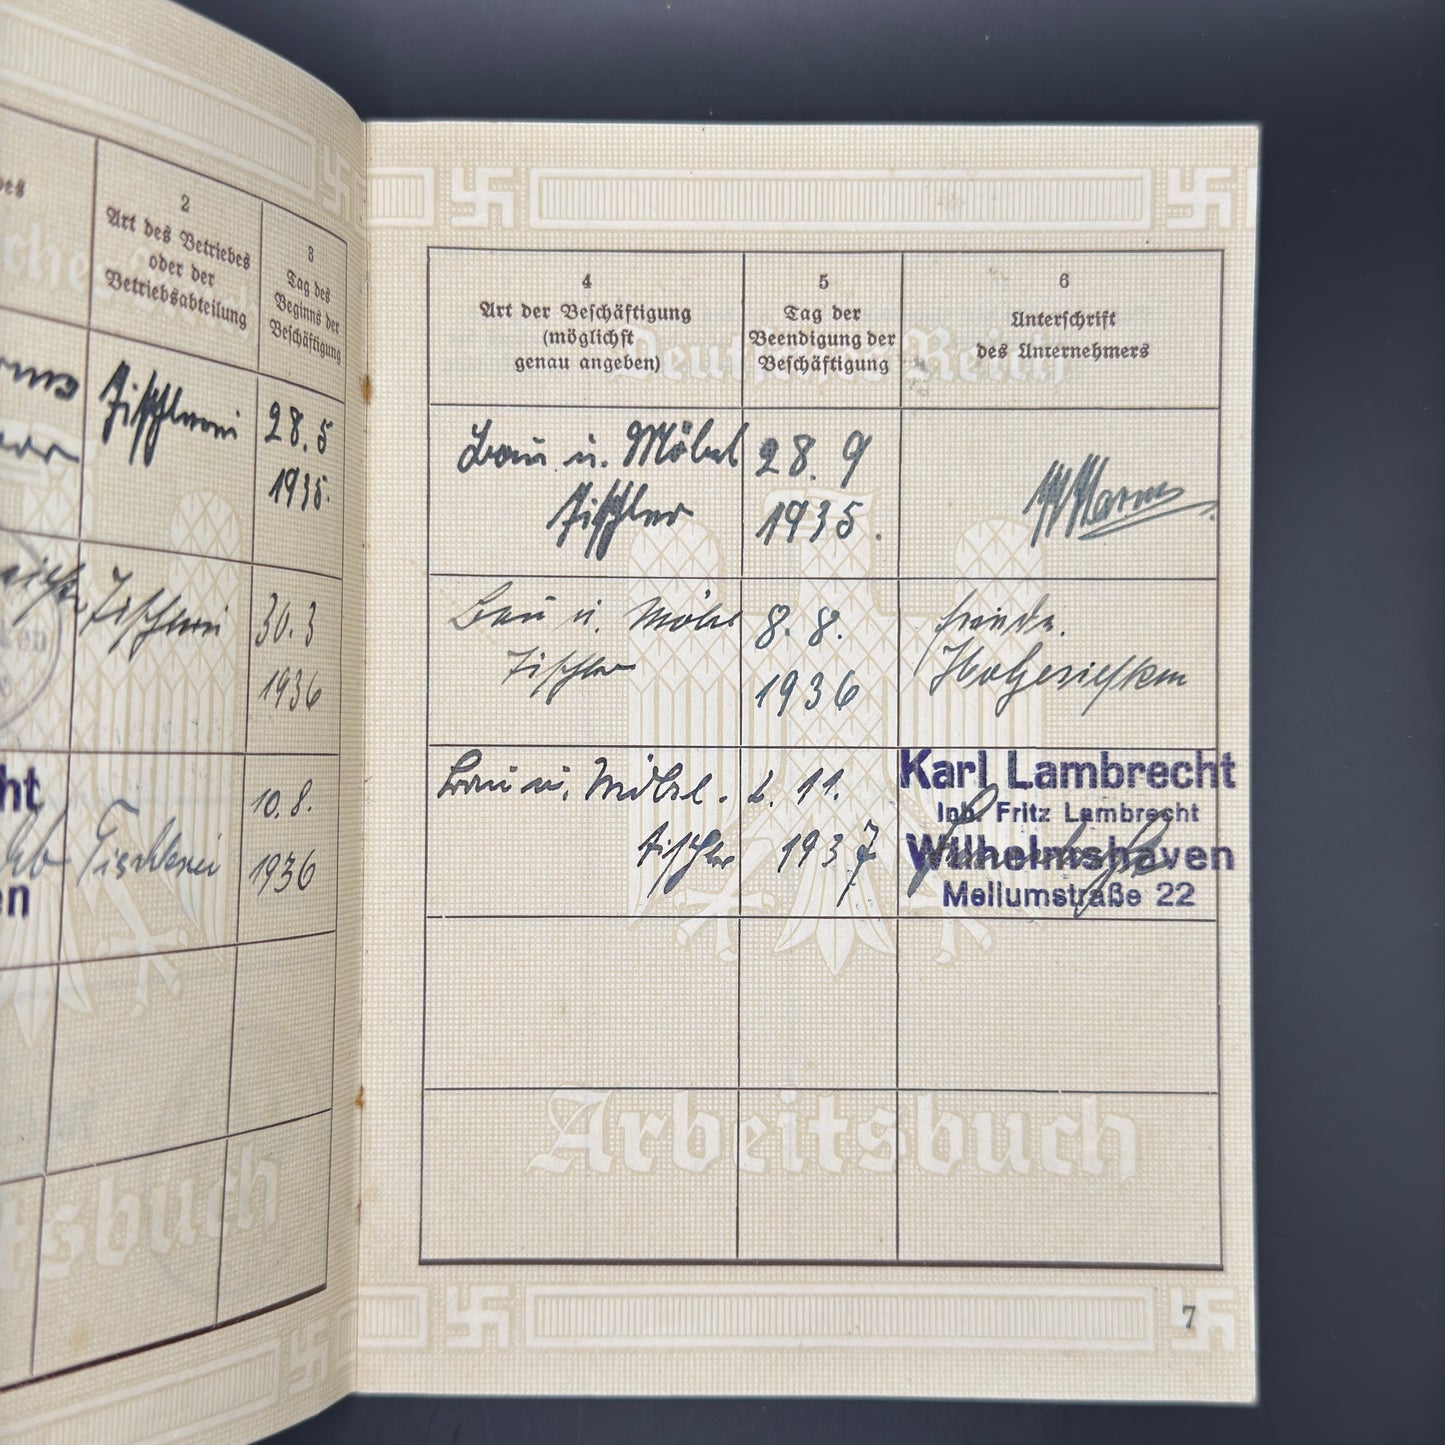 2
Art des Betriebes
oder der
Betriebsabteilung
3
Tag des
Beginns der
Beschäftigung
Tischlerei
28.5
1935.
Tischlerei
30.3
1936
Tischlerei
10.8.
1936
4
Art der Beschäftigung
(möglichst
genau angeben)
5
Tag der
Beendigung der
Beschäftigung
6
Unterschrift
des Unternehmers
Deutsches Reich
Bau u. Möbel
Tischler
28.9
1935.
Bau u. Möbel
Tischler
8.8.
1936
Bau u. Möbel.
Tischler
11.
1937
Karl Lambrecht
Inh. Fritz Lambrecht
Wilhelmshaven
Mellumstraße 22
Arbeitsbuch
7